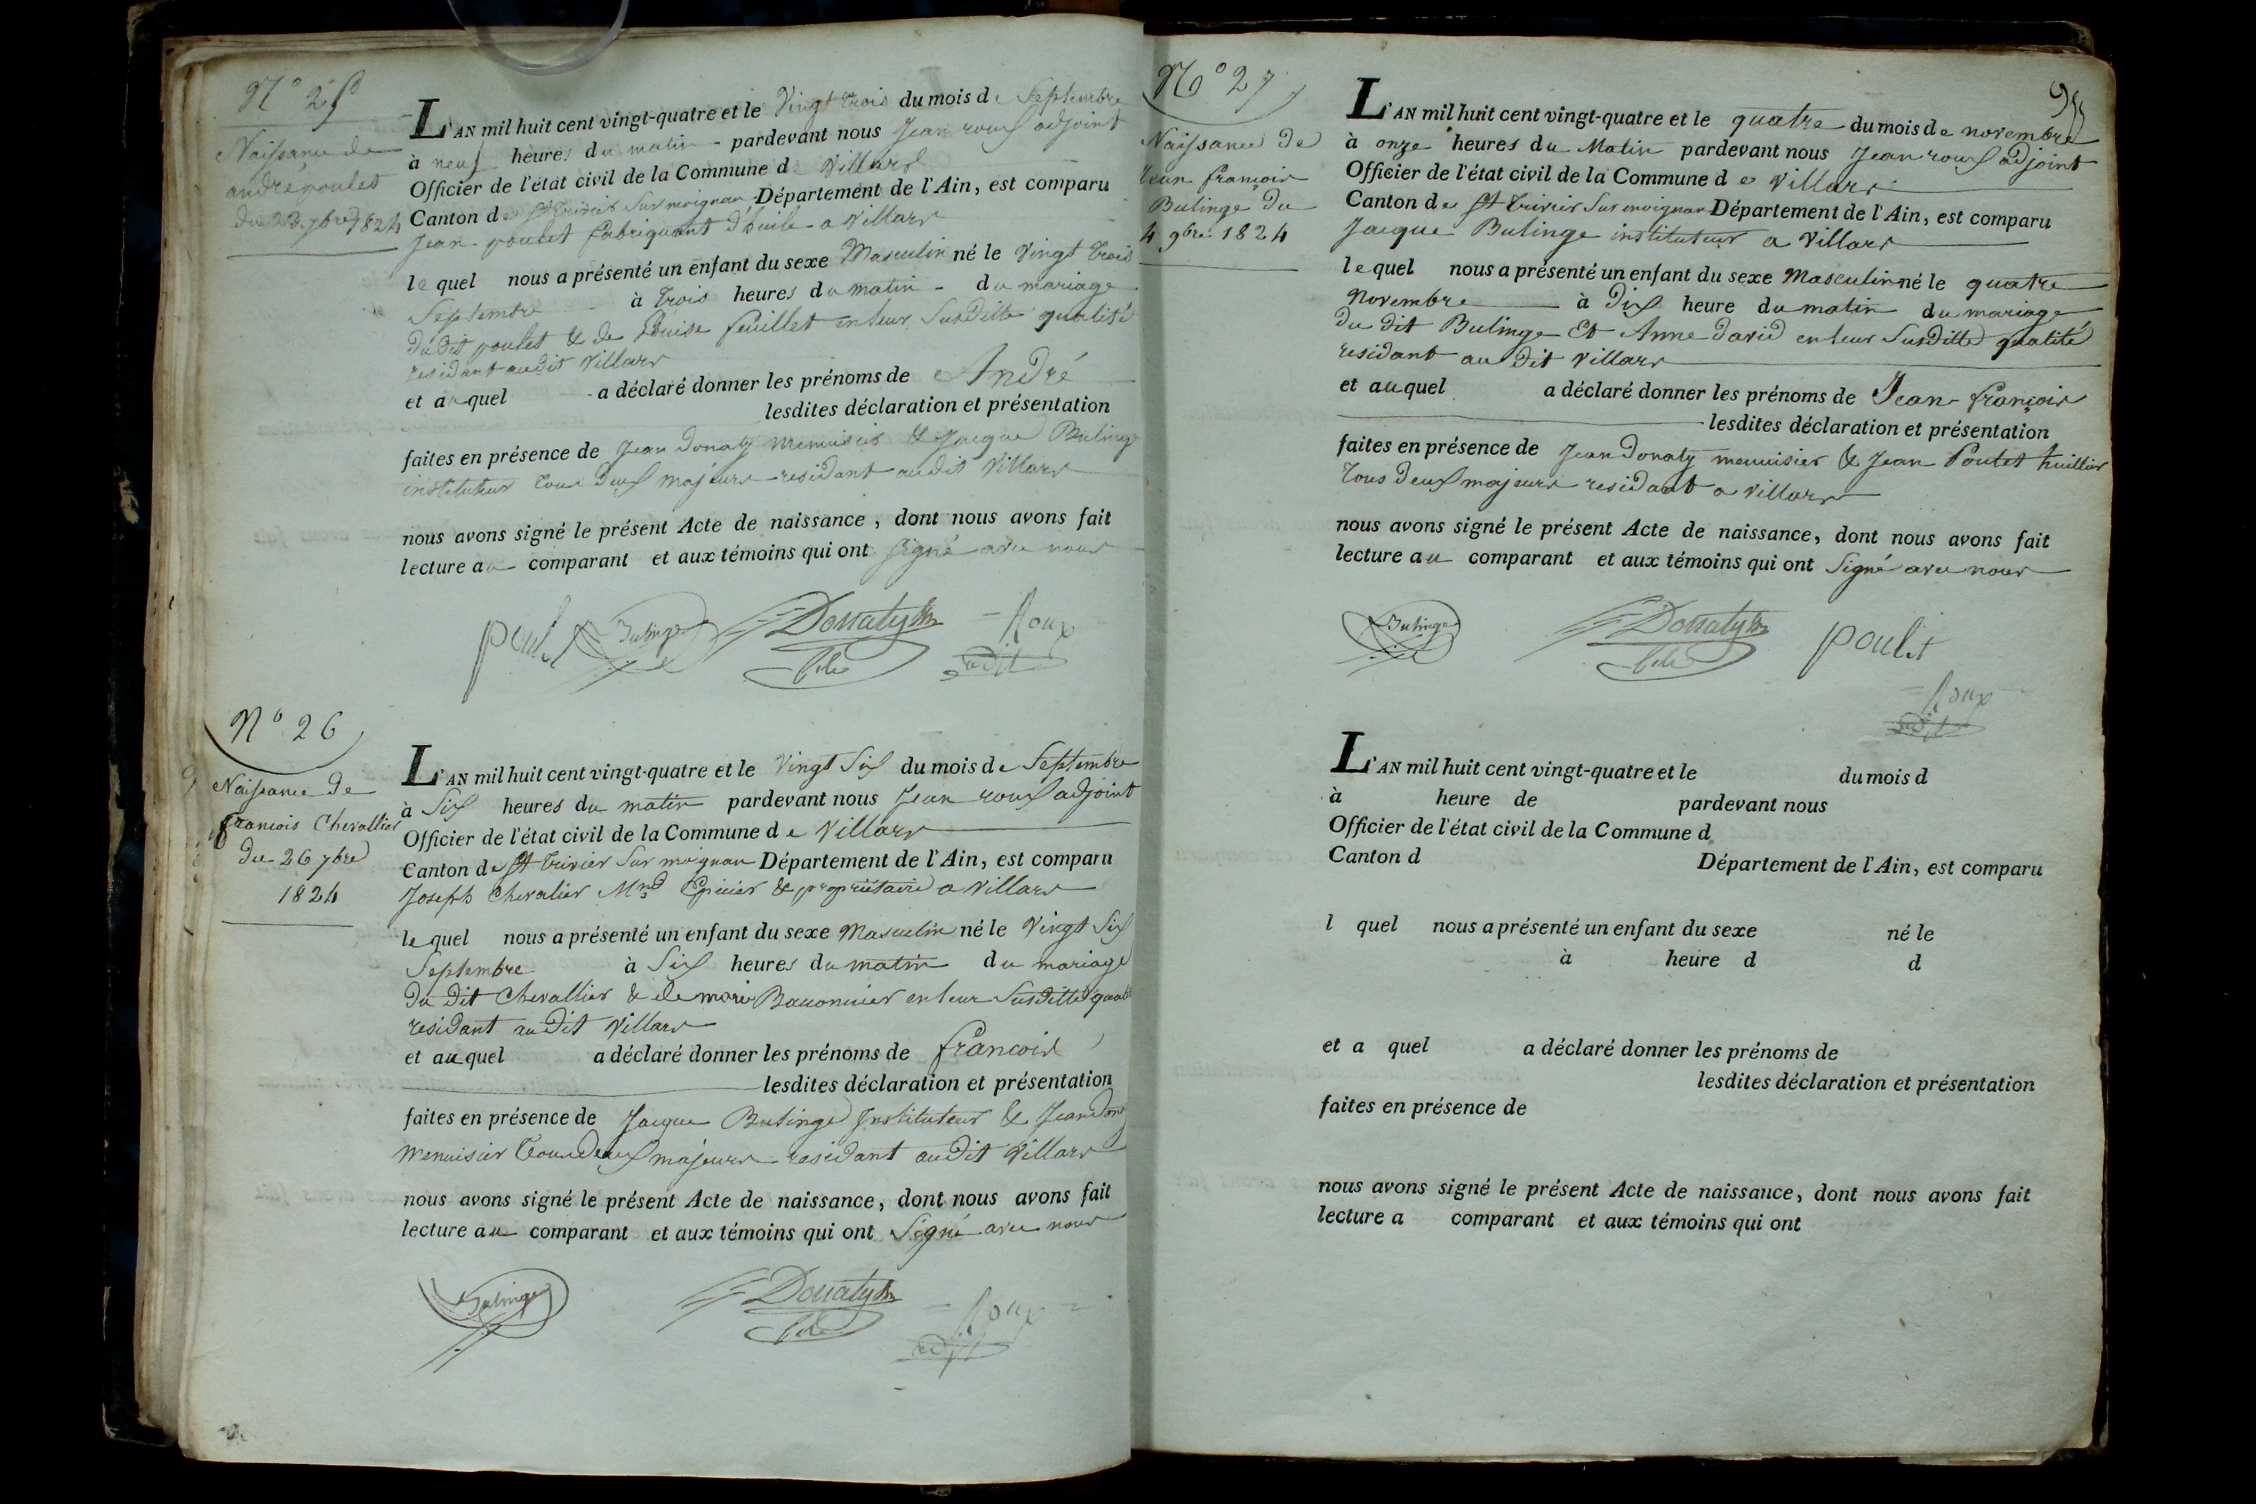 N° 25
Naissance de
andré poulet
du 23 7bre 1824
L'AN mil huit cent vingt-quatre et le Vingt trois du mois de Septembre
à neuf heures du matin - pardevant nous Jean roux adjoint
Officier de l'état civil de la Commune d Villars
Canton de St trivier Sur moignan Département de l'Ain, est comparu
Jean poulet fabriquant d'huile a Villars
le quel nous a présenté un enfant du sexe Masculin né le Vingt trois
Septembre à trois heures du matin - du mariage
du dit poulet & de Louise feuillet en leur Susditte qualité
residant au dit Villars
et a quel a déclaré donner les prénoms de André
lesdites déclaration et présentation
faites en présence de Jean Donaty menuisier & Jacque Bulinge
instituteur tous deux majeurs residant au dit Villars
nous avons signé le présent Acte de naissance, dont nous avons fait
lecture au comparant et aux témoins qui ont signé avec nous
poulet Bulinge Donaty fils Roux adjt
N° 26
Naissance de
francois Chevallier
du 26 7bre
1824
L'AN mil huit cent vingt-quatre et le Vingt Six du mois de Septembre
à Six heures du matin pardevant nous Jean roux adjoint
Officier de l'état civil de la Commune de Villars
Canton de St trivier Sur moignan Département de l'Ain, est comparu
Joseph Chevalier Md Epicier & propriétaire a Villars
le quel nous a présenté un enfant du sexe Masculin né le Vingt Six
Septembre à Six heures du matin du mariage
du dit Chevallier & de marie Bauonnier en leur Susditte qualité
residant au dit Villars
et au quel a déclaré donner les prénoms de francois
lesdites déclaration et présentation
faites en présence de Jacque Bulinge Instituteur & Jean Donaty
menuisier tous deux majeurs residant au dit Villars
nous avons signé le présent Acte de naissance, dont nous avons fait
lecture au comparant et aux témoins qui ont Signé avec nous
Bulinge Donaty fils Roux adjt
95
N° 27
Naissance de
Jean françois
Bulinge du
4 9bre 1824
L'AN mil huit cent vingt-quatre et le quatre du mois de novembre
à onze heures du Matin pardevant nous Jean roux adjoint
Officier de l'état civil de la Commune de Villars
Canton de St trivier Sur moignan Département de l'Ain, est comparu
Jacque Bulinge instituteur a Villars
le quel nous a présenté un enfant du sexe Masculin né le quatre
Novembre à dix heure du matin du mariage
du dit Bulinge Et Anne david en leur Susditte qualité
residant au dit Villars
et au quel a déclaré donner les prénoms de Jean françois
lesdites déclaration et présentation
faites en présence de Jean Donaty menuisier & Jean Poulet huillier
tous deux majeurs residant a Villars
nous avons signé le présent Acte de naissance, dont nous avons fait
lecture au comparant et aux témoins qui ont Signé avec nous
Bulinge Donaty fils poulet
Roux adjt
L'AN mil huit cent vingt-quatre et le du mois d
à heure de pardevant nous
Officier de l'état civil de la Commune d
Canton d Département de l'Ain, est comparu
l quel nous a présenté un enfant du sexe né le
à heure d d
et a quel a déclaré donner les prénoms de
lesdites déclaration et présentation
faites en présence de
nous avons signé le présent Acte de naissance, dont nous avons fait
lecture a comparant et aux témoins qui ont